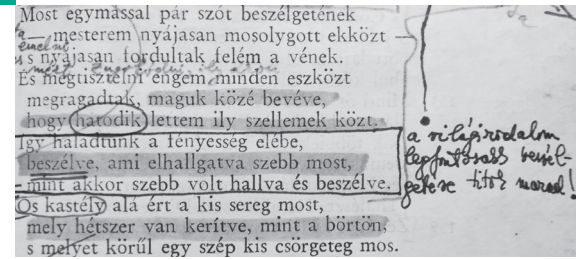 Most egymással pár szót beszélgetének
— mesterem nyájasan mosolygott ekközt —
s nyájasan fordultak felém a vének.
És megtisztelni engem minden eszközt
megragadtak, maguk közé bevéve,
hogy hatodik lettem ily szellemek közt.
Így haladtunk a fényesség elébe,
beszélve, ami elhallgatva szebb most,
mint akkor szebb volt hallva és beszélve.
Ős kastély alá ért a kis sereg most,
mely hétszer van kerítve, mint a börtön,
s melyet körűl egy szép kis csörgeteg mos.
a világirodalom
legfontosabb beszél-
getése titok marad!